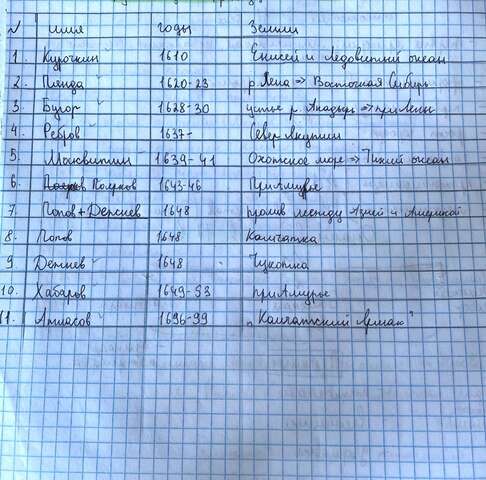 № имя годы Земли
1. Курочкин 1610 Енисей и Ледовитый океан
2. Пянда 1620-23 р Лена => Восточная Сибирь
3 Бугор 1628-30 устье р. Анадырь => при Лены
4. Ребров 1637- Север Якутии
5. Москвитин 1639-41 Охотское море => Тихий океан
6. Поярков 1643-46 Приамурье
7. Попов + Дежнев 1648 пролив между Азией и Америкой
8. Попов 1648 Камчатка
9. Дежнев 1648 Чукотка
10. Хабаров 1649-53 приАмурье
11. Атласов 1696-99 „Камчатский Ермак"